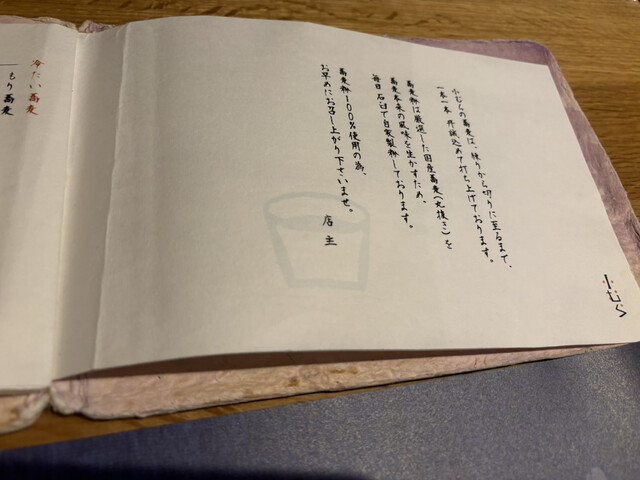 小むら
小むらの蕎麦は、練りから切りに至るまで、
一本一本 丹誠込めて打ち上げております。
蕎麦粉は厳選した国産蕎麦(丸抜き)を
蕎麦本来の風味を生かすため、
毎日石臼で自家製粉しております。
蕎麦粉100%使用の為、
お早めにお召し上がり下さいませ。
店主
冷たい蕎麦
もり蕎麦